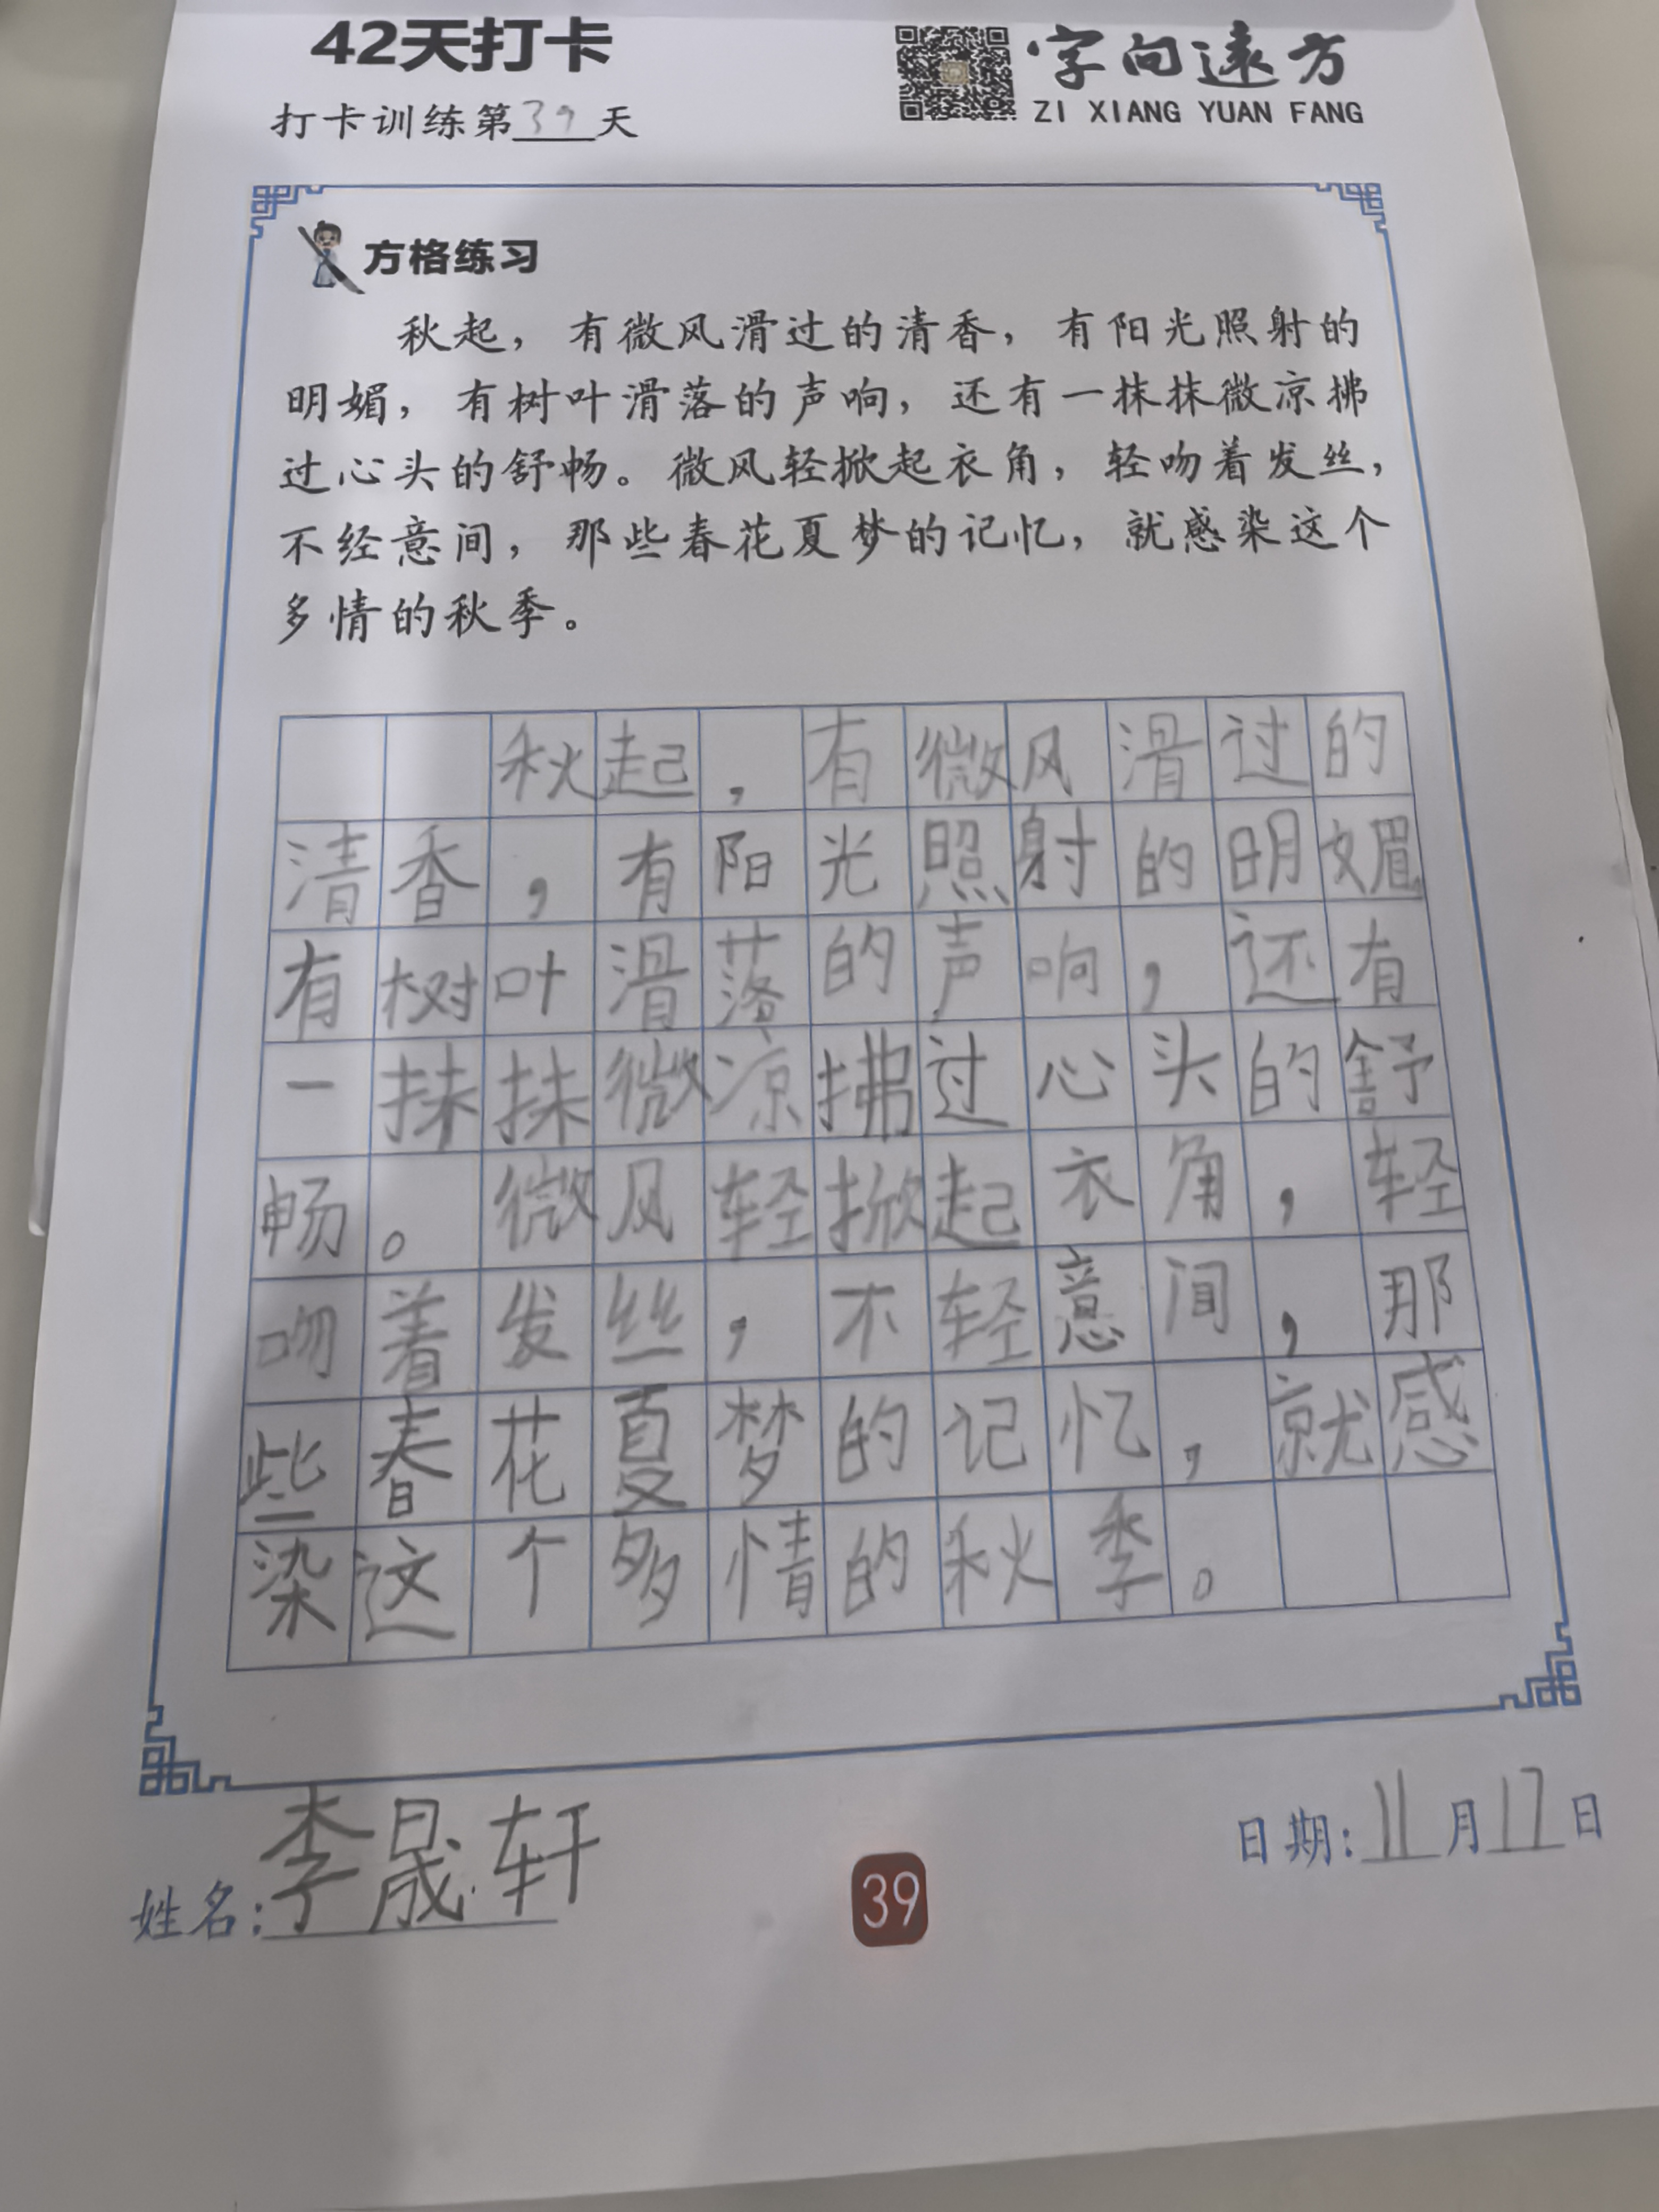 42天打卡
字向远方
打卡训练第39天
ZI XIANG YUAN FANG
方格练习
秋起，有微风滑过的清香，有阳光照射的
明媚，有树叶滑落的声响，还有一抹抹微凉拂
过心头的舒畅。微风轻掀起衣角，轻吻着发丝，
不经意间，那些春花夏梦的记忆，就感染这个
多情的秋季。
秋起，有微风滑过的
清香，有阳光照射的明媚
有树叶滑落的声响，还有
一抹抹微凉拂过心头的舒
畅。微风轻掀起衣角，轻
吻着发丝，不轻意间，那
些春花夏梦的记忆，就感
染这个多情的秋季。
姓名：李晟轩
39
日期：11月17日